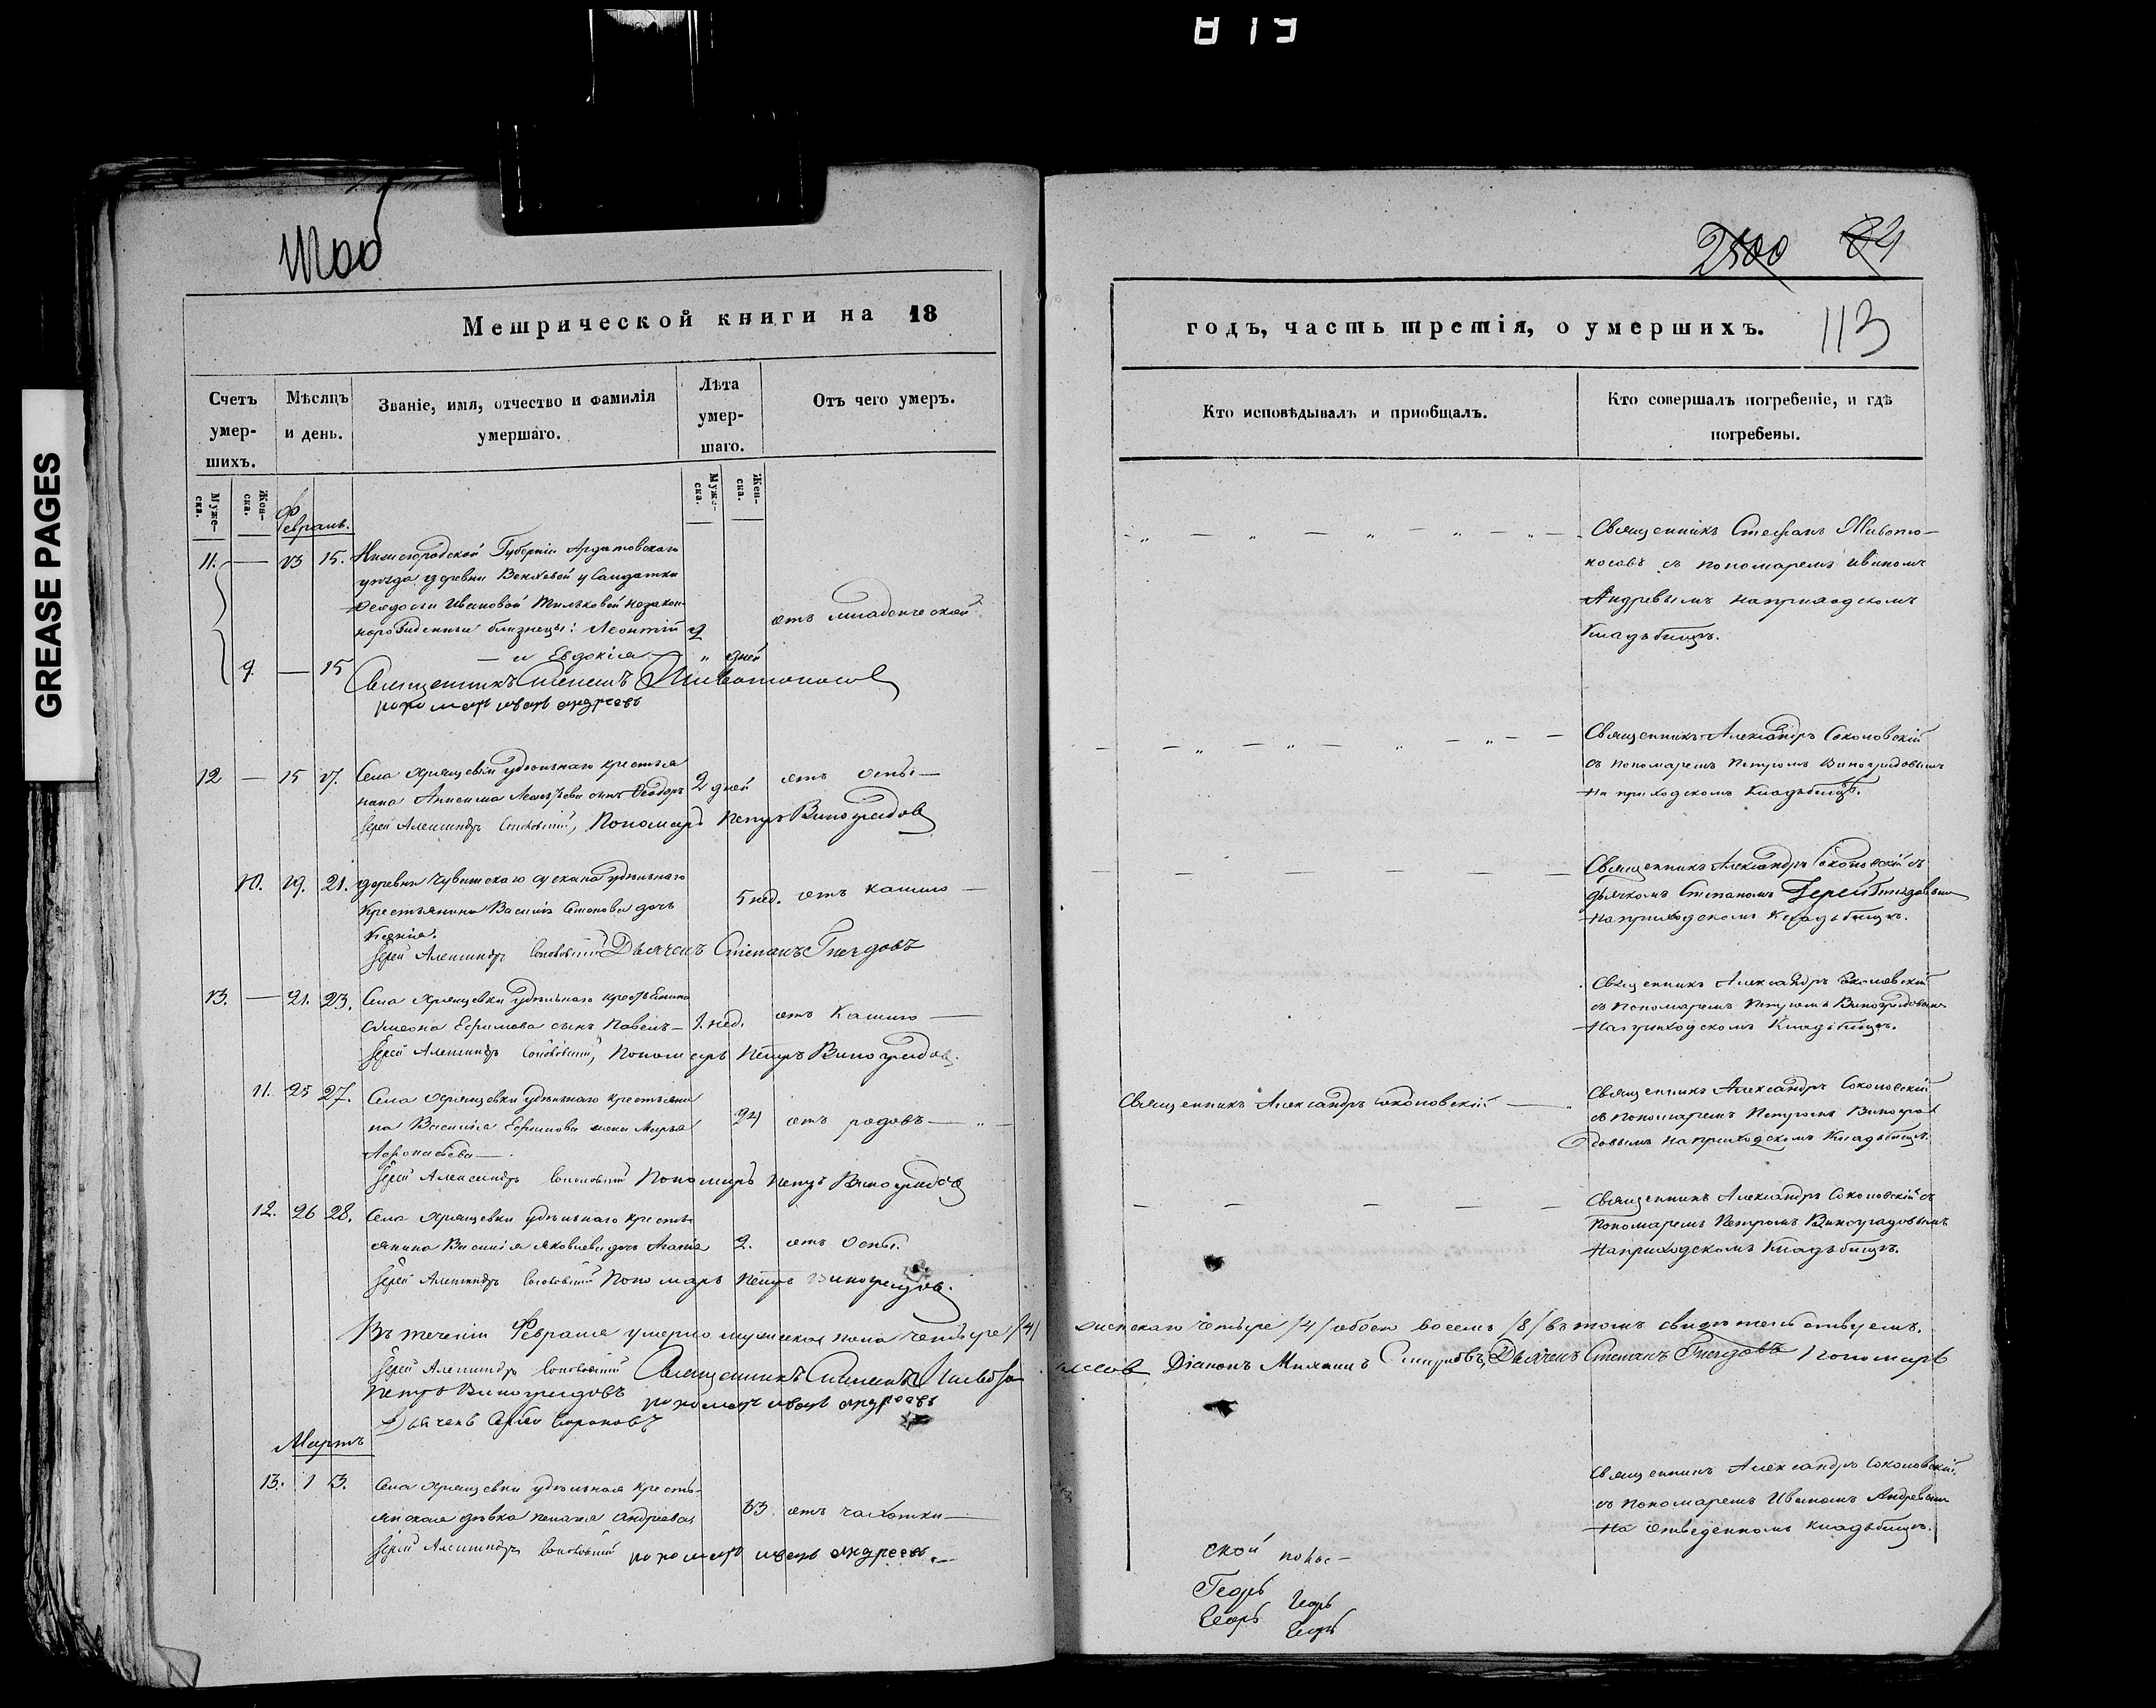 819
GREASE PAGES
Метрической книги на 18
Счетъ умершихъ.
Мѣсяцъ и день.
Званіе, имя, отчество и фамилія умершаго.
Лѣта умершаго.
Отъ чего умеръ.
Муже-ска.
Жен-ска.
Муже-ска.
Жен-ска.
Февраль.
11. — 13 15. Нижегородской Губерніи Ардатовскаго
уѣзда деревни
Ивановой незакон-
норожденные близнецы: Леонтій 2 отъ младенческой
9. — 15 — и Евдокія — " дней
Священникъ Стефанъ Животоносовъ
пономарь иванъ андреевъ
12 — 15 17. Села Хрящевки удѣльнаго крестья
нина сынъ Ѳеодоръ 2 дней отъ оспы —
Іерей Александръ Соколовскій, Пономарь Петръ Виноградовъ
10. 19. 21. деревни Чувашскаго сускана удѣльнаго
Крестьянина Василія Семенова дочь 5 нед. отъ кашлю —
Ксенія.
Іерей Александръ Соколовскій Дьячекъ Степанъ Гнездовъ
13. — 21. 23. Села Хрящевки удѣльнаго крестьянина
Симеона Ефимова сынъ Павелъ — 1. нед. отъ Кашлю —
Іерей Александръ Соколовскій, Пономарь Петръ Виноградовъ.
11. 25 27. Села Хрящевки удѣльнаго крестьяни
на Василія Ефимова жена Марья 24 отъ родовъ —
Афонасьева —
Іерей Александръ Соколовскій Пономарь Петръ Виноградовъ
12. 26 28. Села Хрящевки удѣльнаго кресть-
янина Василія Яковлева дочь Агапія 2. отъ Оспы.
Іерей Александръ Соколовскій Пономарь Петръ Виноградовъ.
Въ теченіи Февраля умерло мужеска пола четыре /4/
Іерей Александръ Соколовскій Священникъ Стефанъ Животоно
Петръ Виноградовъ пономарь иванъ андреевъ
Дьячекъ
Мартъ
13. 1 3. Села Хрящевки удѣльная кресть-
янская дѣвка пелагея андреева 63 отъ чахотки —
Іерей Александръ Соколовскій пономарь иванъ андреевъ. —
2500 84
годъ, часть третія, о умершихъ.
113
Кто исповѣдывалъ и пріобщалъ.
Кто совершалъ погребеніе, и гдѣ погребены.
Священникъ Стефанъ Живото-
носовъ съ пономаремъ иваномъ
Андревымъ на приходскомъ
Кладьбищѣ.
Священникъ Александръ Соколовскій
съ пономаремъ Петромъ Виноградовымъ
На приходскомъ Кладьбищѣ.
Священникъ Александръ Соколовскій съ
дьячкомъ Степаномъ Гнездовымъ
На приходскомъ Кладьбищѣ.
Священникъ Александръ Соколовскій
съ пономаремъ Петромъ Виноградовымъ
На приходскомъ Кладьбищѣ.
Священникъ Александръ Соколовскій —
Священникъ Александръ Соколовскій
съ пономаремъ Петромъ Виногра
довымъ на приходскомъ Кладьбищѣ.
Священникъ Александръ Соколовскій съ
Пономаремъ Петромъ Виноградовымъ
На приходскомъ Кладьбищѣ.
женскаго четыре /4/ обоего восемь /8/ въ томъ свидѣтельствуемъ.
носовъ Діаконъ Михаилъ Смирновъ, Дьячекъ Степанъ Гнездовъ Пономарь
Священникъ Александръ Соколовскій.
съ пономаремъ Иваномъ Андревымъ
На отведенномъ кладьбищѣ.
ской